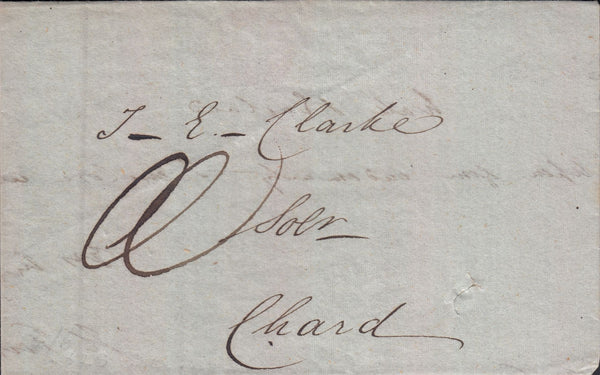 T - E - Clarke
Solr
Chard